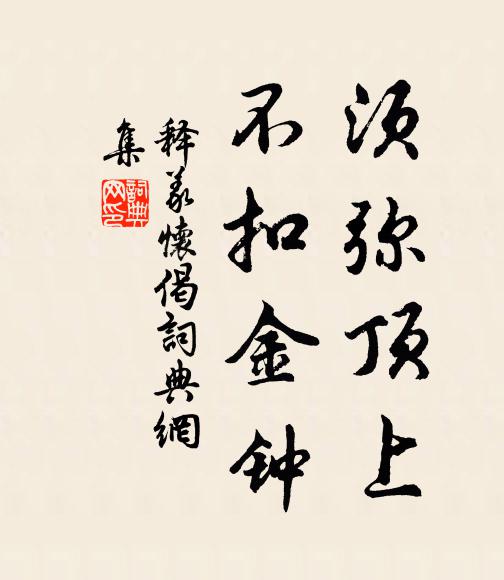 须弥顶上
不扣金钟
释义懷偈詞典網
集
詞典网印